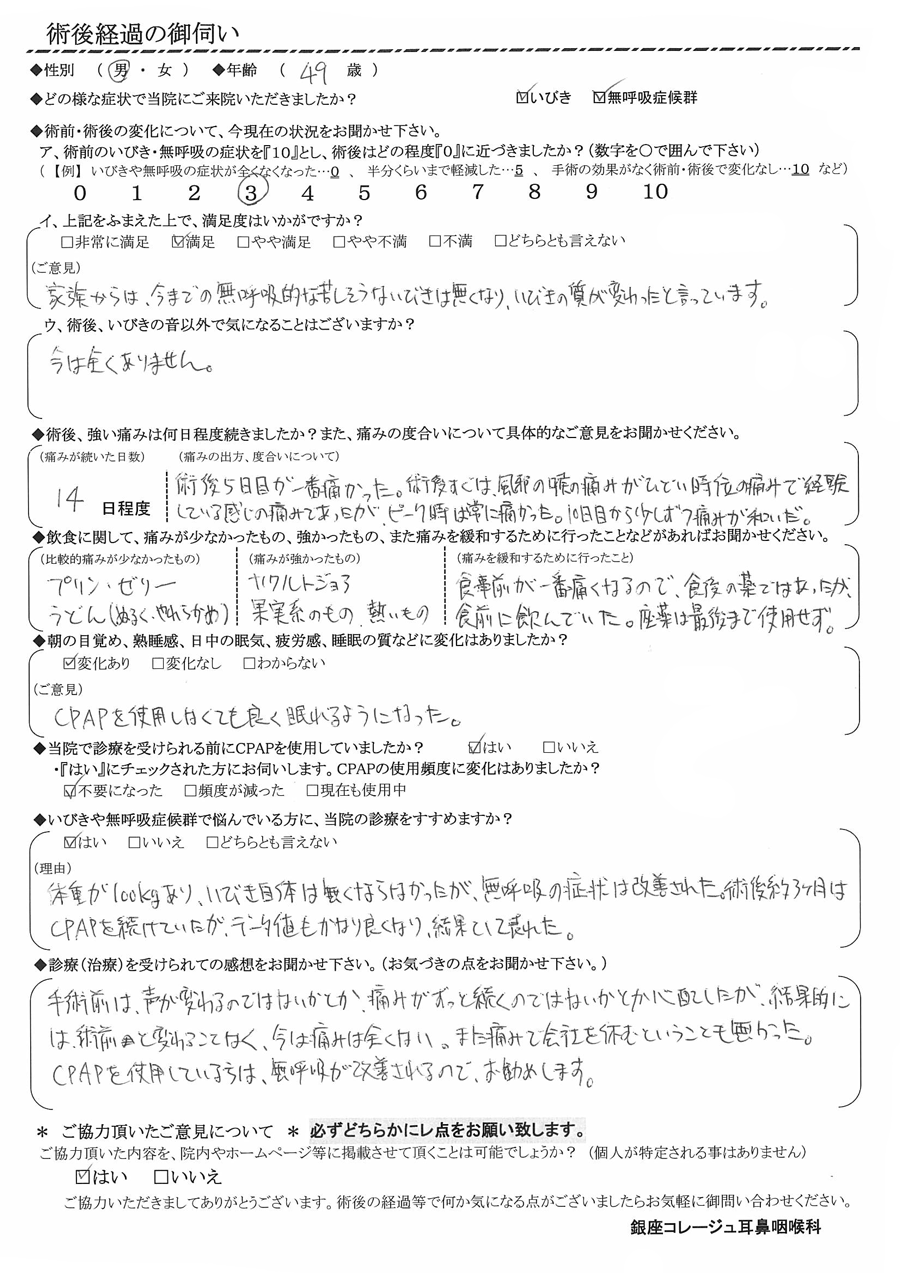 術後経過の御伺い
◆性別 （ 男 ・ 女 ） ◆年齢 （ 49 歳 ）
◆どの様な症状で当院にご来院いただきましたか？ ☑いびき ☑無呼吸症候群
◆術前・術後の変化について、今現在の状況をお聞かせ下さい。
ア、術前のいびき・無呼吸の症状を『10』とし、術後はどの程度『0』に近づきましたか？（数字を〇で囲んで下さい）
（【例】 いびきや無呼吸の症状が全くなくなった…0 、 半分くらいまで軽減した…5 、 手術の効果がなく術前・術後で変化なし…10 など）
0 1 2 3 4 5 6 7 8 9 10
イ、上記をふまえた上で、満足度はいかがですか？
□非常に満足 ☑満足 □やや満足 □やや不満 □不満 □どちらとも言えない
（ご意見）
家族からは、今までの無呼吸的な苦しそうないびきは無くなり、いびきの質が変わったと言っています。
ウ、術後、いびきの音以外で気になることはございますか？
今は全くありません。
◆術後、強い痛みは何日程度続きましたか？また、痛みの度合いについて具体的なご意見をお聞かせください。
（痛みが続いた日数） （痛みの出方、度合いについて）
14 日程度
術後5日目が一番痛かった。術後すぐは、風邪の喉の痛みがひどい時位の痛みで経験
している感じの痛みであったが、ピーク時は常に痛かった。10日目から少しずつ痛みが和いだ。
◆飲食に関して、痛みが少なかったもの、強かったもの、また痛みを緩和するために行ったことなどがあればお聞かせください。
（比較的痛みが少なかったもの） （痛みが強かったもの） （痛みを緩和するために行ったこと）
プリン・ゼリー
うどん（ぬるく・やわらかめ）
ヤクルトジョア
果実系のもの、熱いもの
食事前が一番痛くなるので、食後の薬ではあったが、
食前に飲んでいた。座薬は最後まで使用せず。
◆朝の目覚め、熟睡感、日中の眠気、疲労感、睡眠の質などに変化はありましたか？
☑変化あり □変化なし □わからない
（ご意見）
CPAPを使用しなくても良く眠れるようになった。
◆当院で診療を受けられる前にCPAPを使用していましたか？ ☑はい □いいえ
・『はい』にチェックされた方にお伺いします。CPAPの使用頻度に変化はありましたか？
☑不要になった □頻度が減った □現在も使用中
◆いびきや無呼吸症候群で悩んでいる方に、当院の診療をすすめますか？
☑はい □いいえ □どちらとも言えない
（理由）
体重が100kgあり、いびき自体は無くならなかったが、無呼吸の症状は改善された。術後約3ヶ月は
CPAPを続けていたが、データ値もかなり良くなり、結果として表れた。
◆診療（治療）を受けられての感想をお聞かせ下さい。（お気づきの点をお聞かせ下さい。）
手術前は、声が変わるのではないかとか、痛みがずっと続くのではないかとか心配したが、結果的に
は、術前と変わることなく、今は痛みは全くない。また痛みで会社を休むということも無かった。
CPAPを使用している方は、無呼吸が改善されるので、お勧めします。
＊ ご協力頂いたご意見について ＊ 必ずどちらかにレ点をお願い致します。
ご協力頂いた内容を、院内やホームページ等に掲載させて頂くことは可能でしょうか？ （個人が特定される事はありません）
☑はい □いいえ
ご協力いただきましてありがとうございます。術後の経過等で何か気になる点がございましたらお気軽に御問い合わせください。
銀座コレージュ耳鼻咽喉科